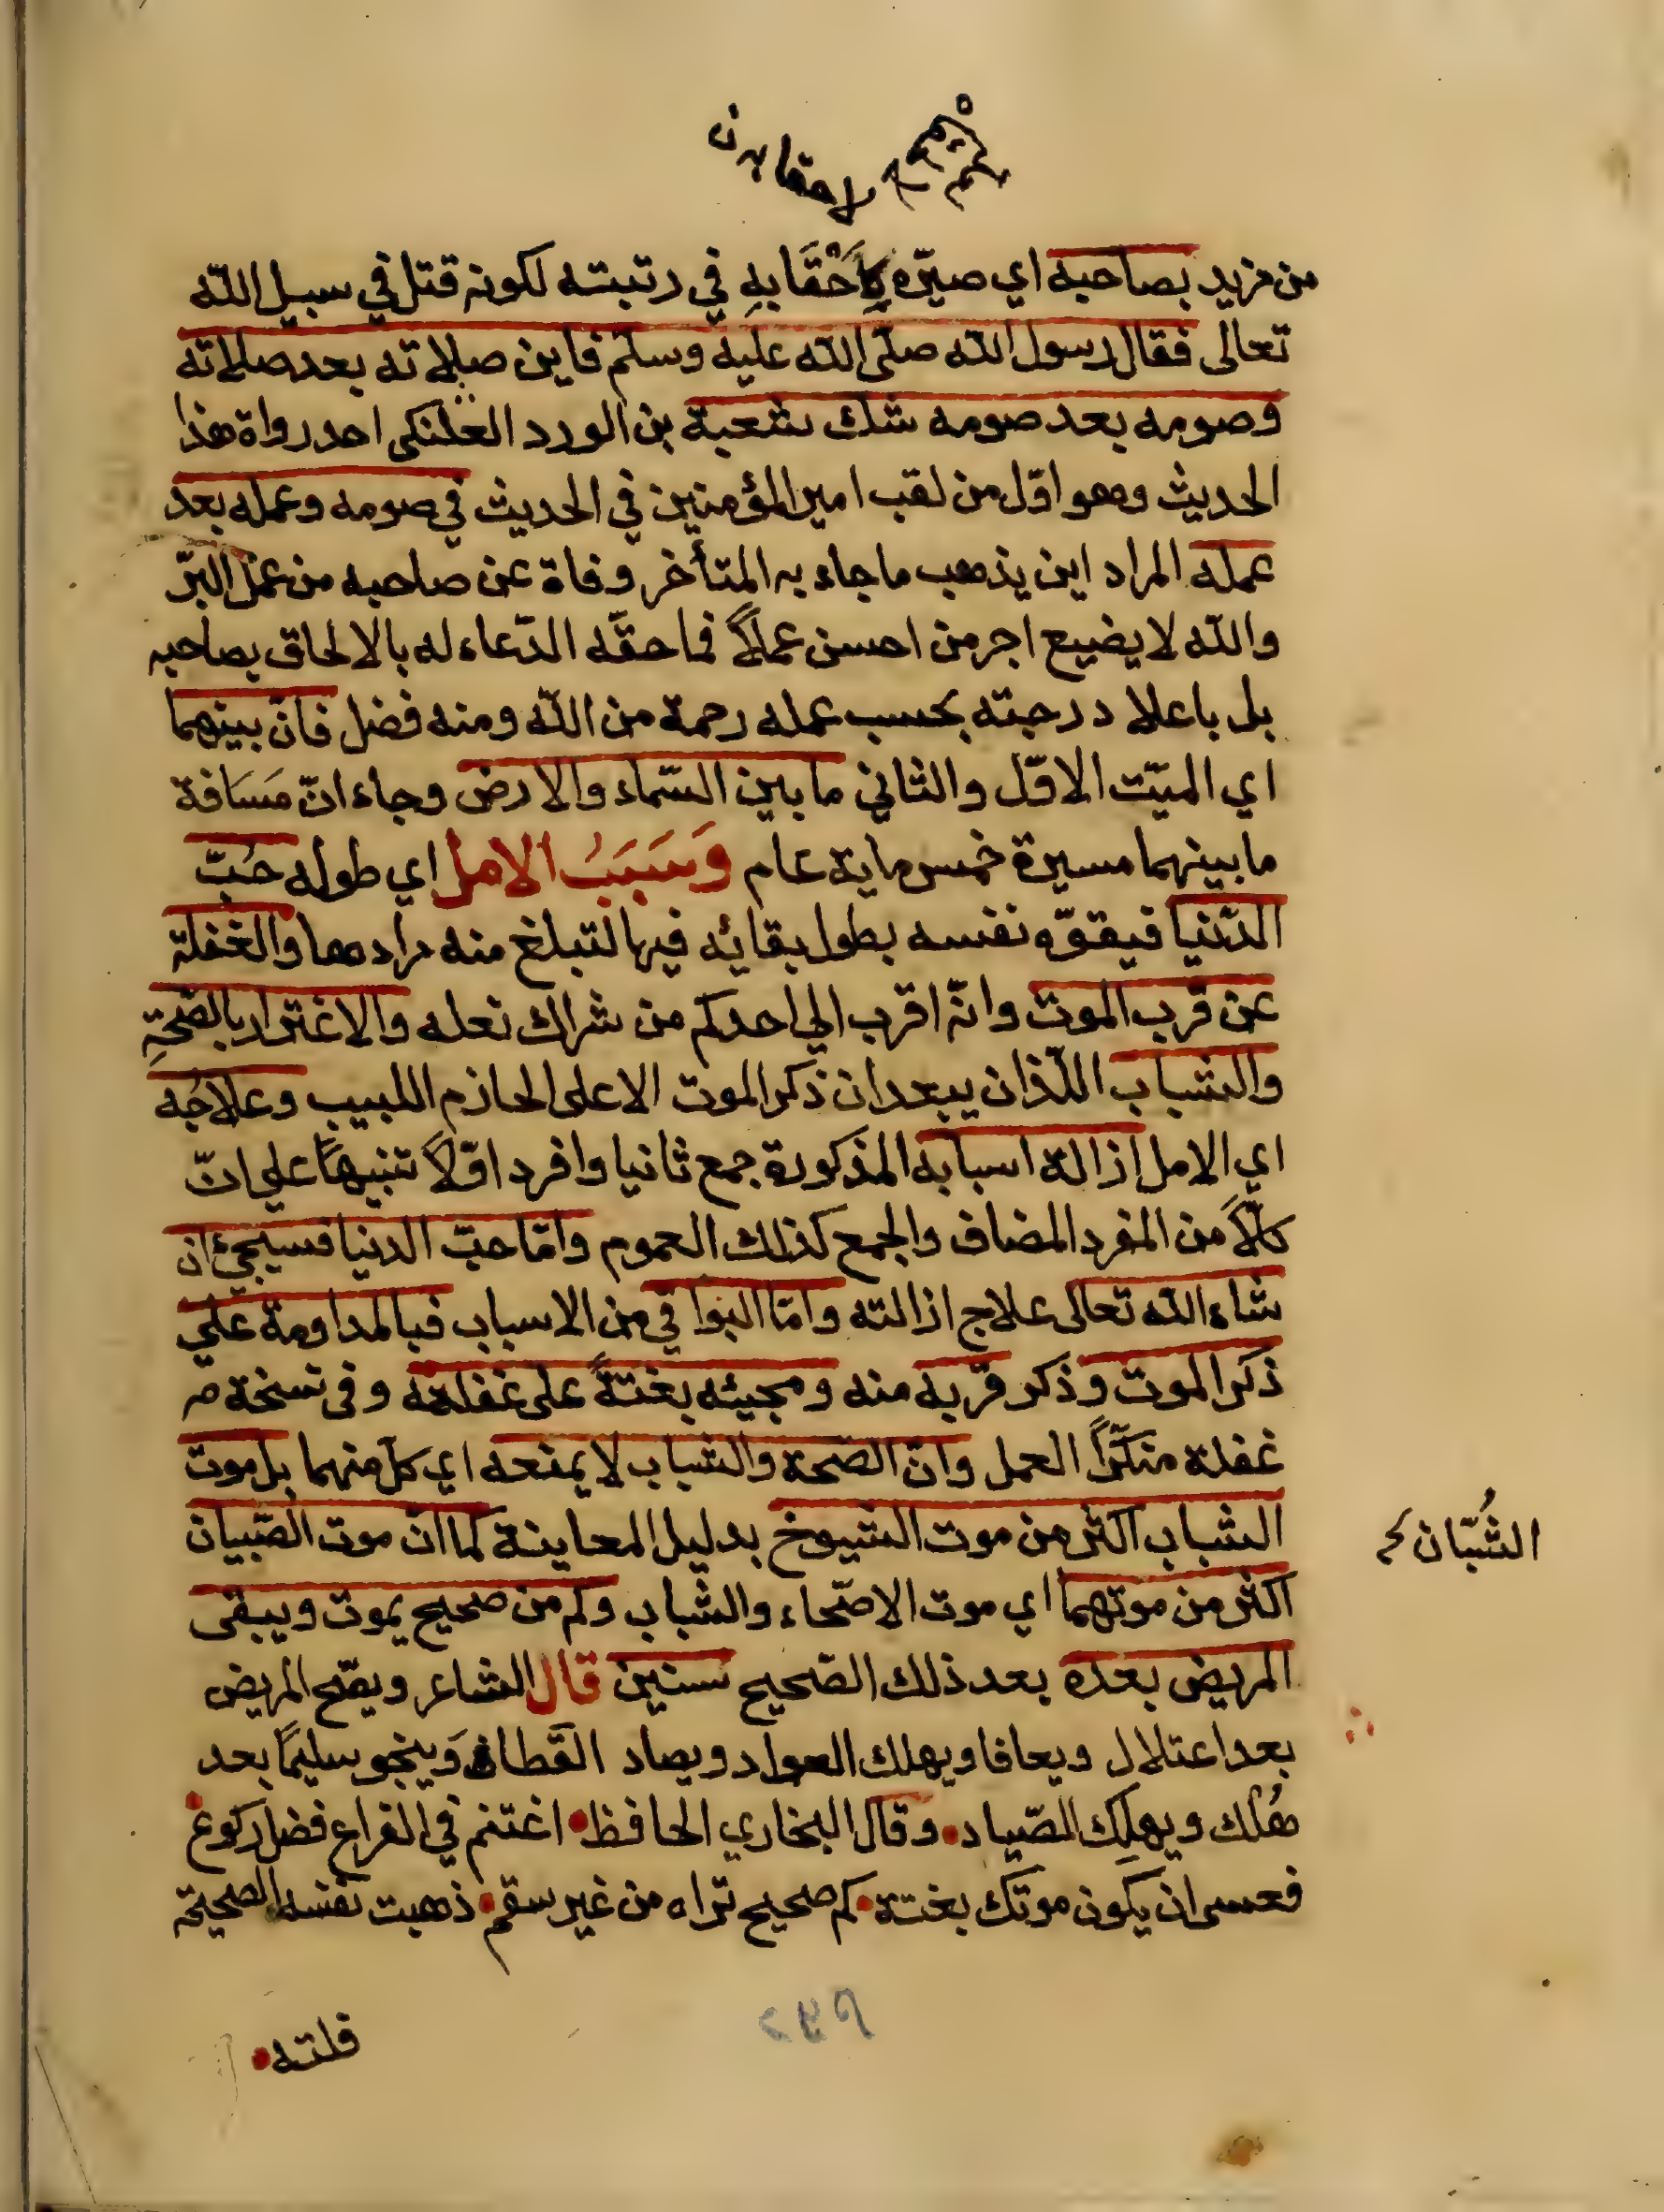 لاحقا به ن
من مزيد بصاحبه اي صيّره لِاَحْقَا بِهِ في رتبته لكونه قتل في سبيل الله
تعالى فقال رسول الله صلّى الله عليه وسلّم فاين صلاته بعد صلاته
وصومه بعد صومه شك شعبة بن الورد العتكى احد رواة هذا
الحديث وهو اوّل من لقب امير المؤمنين في الحديث في صومه وعمله بعد
عمله المراد اين يذهب ما جاء به المتأخر وفاة عن صاحبه من عمل البرّ
والله لا يضيع اجر من احسن عملاً فما حقّه الدّعاء له بالالحاق بصاحبه
بل باعلا درجته بحسب عمله رحمة من الله ومنه فضل فانّ بينهما
اي الميّت الاوّل والثاني ما بين السّماء والارض وجاء انّ مَسَافة
ما بينهما مسيرة خمس ماية عام وَسَبَبُ الامل اي طوله حُبّ
الدّنيا فيقوّه نفسه بطول بقائه فيها لتبلغ منه مرادها والغفلة
عن قرب الموت وانّه اقرب الي احدكم من شراك نعله والاغترار بالصّحّةِ
والشباب اللّذان يبعدان ذكر الموت الا على الحازم اللبيب وعلاجُه
اي الامل ازالة اسبابه المذكورة جمع ثانيا وافرد اوّلاً تنبيهًا علي انّ
كلّاً من المفرد المضاف والجمع كذلك العموم وامّا حبّ الدنيا فسيجئ ان
شاء الله تعالى علاج ازالته وامّا البواقي من الاسباب فبالمداومة علي
ذكر الموت وذكر قربه منه ومجيئه بغتةً على غفلةٍ وفى نسخة مر
غفلة منكّراً العمل وانّ الصّحة والشباب لا يمنعه اي كلّ منهما بل موت
الشباب اكثر من موت الشيوخ بدليل المعاينة كما انّ موت الصّبيان
الشُّبّان
اكثر من موتهما اي موت الاصّحاء والشّباب وكم من صحيح يموت ويبقى
المريض بعده بعد ذلك الصّحيح سنين قال الشاعر ويصّح المريض
بعد اعتلال ويعافا ويهلك العواد ويصاد القطاف وَينجو سليمًا بعد
هُلْك ويهلِك الصّياد وقال البخاري الحافظ اغتنم في الفراغ فضل ركوع
فعسى ان يكون موتك بغتة كم صحيح تراه من غير سقم ذهبت نفسه الصحيحة
فلته